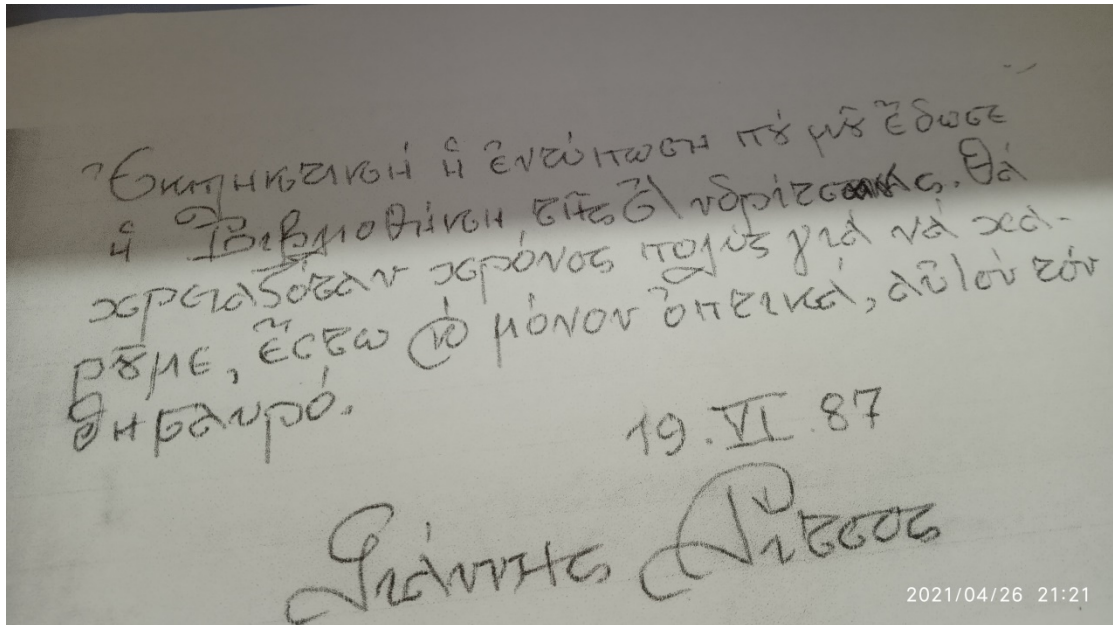 Ἐκπληκτική ἡ ἐντύπωση πού μοῦ ἔδωσε
ἡ Βιβλιοθήκη τῆς Θά
χρειαζόταν χρόνος πολύς γιά νά χα-
ροῦμε, ἔστω μόνον ὀπτικά, αὐτόν τόν
θησαυρό.
19.VI.87
Γιάννης Ρίτσος
2021/04/26 21:21